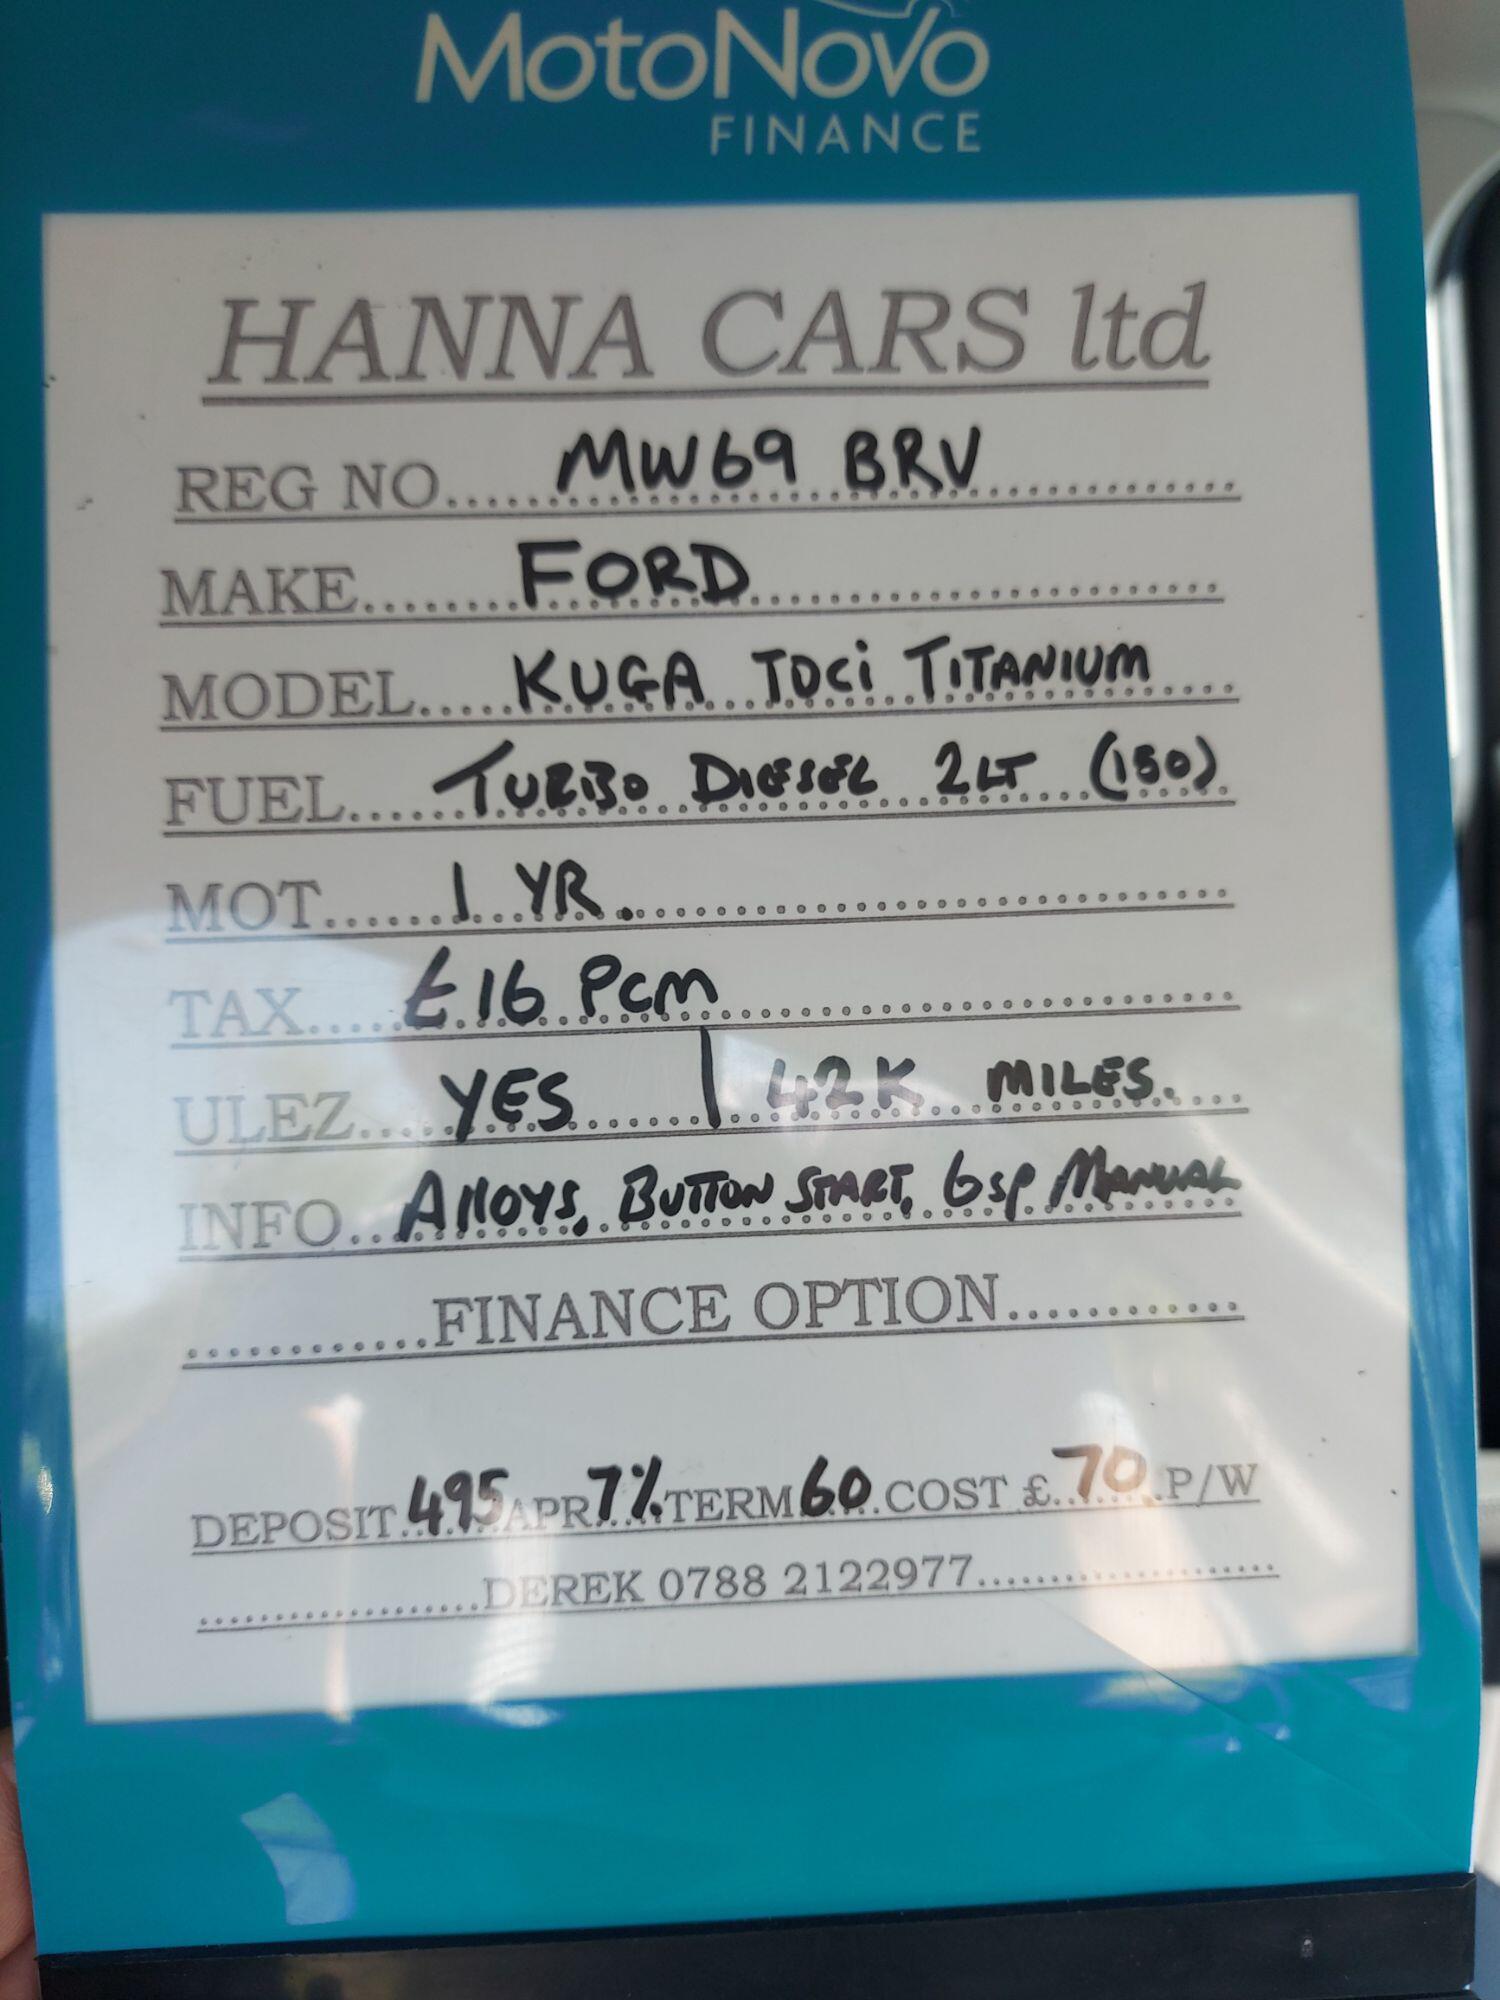 MotoNovo
FINANCE
HANNA CARS ltd
REG NO.....MW69 BRV
MAKE.....FORD
MODEL.....KUGA TDCi TITANIUM
FUEL.....TURBO DIESEL 2LT (150)
MOT.....1 YR.
TAX.....£16 PCM
ULEZ.....YES | 42K MILES.
INFO...Alloys, BUTTON START, 6sp MANUAL
............FINANCE OPTION............
DEPOSIT 495 APR 7% TERM 60 COST £ 70 P/W
..................DEREK 0788 2122977....................